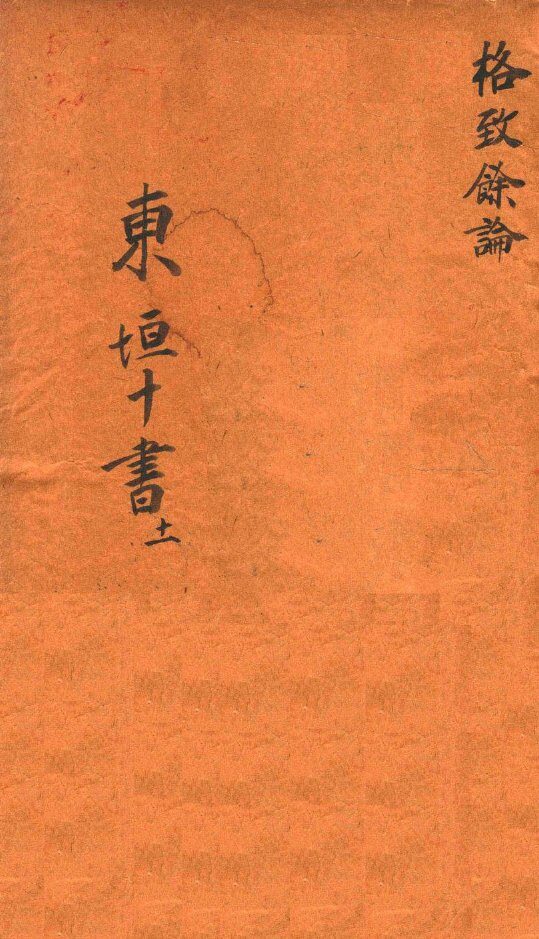 格致餘論
東垣十書
十一